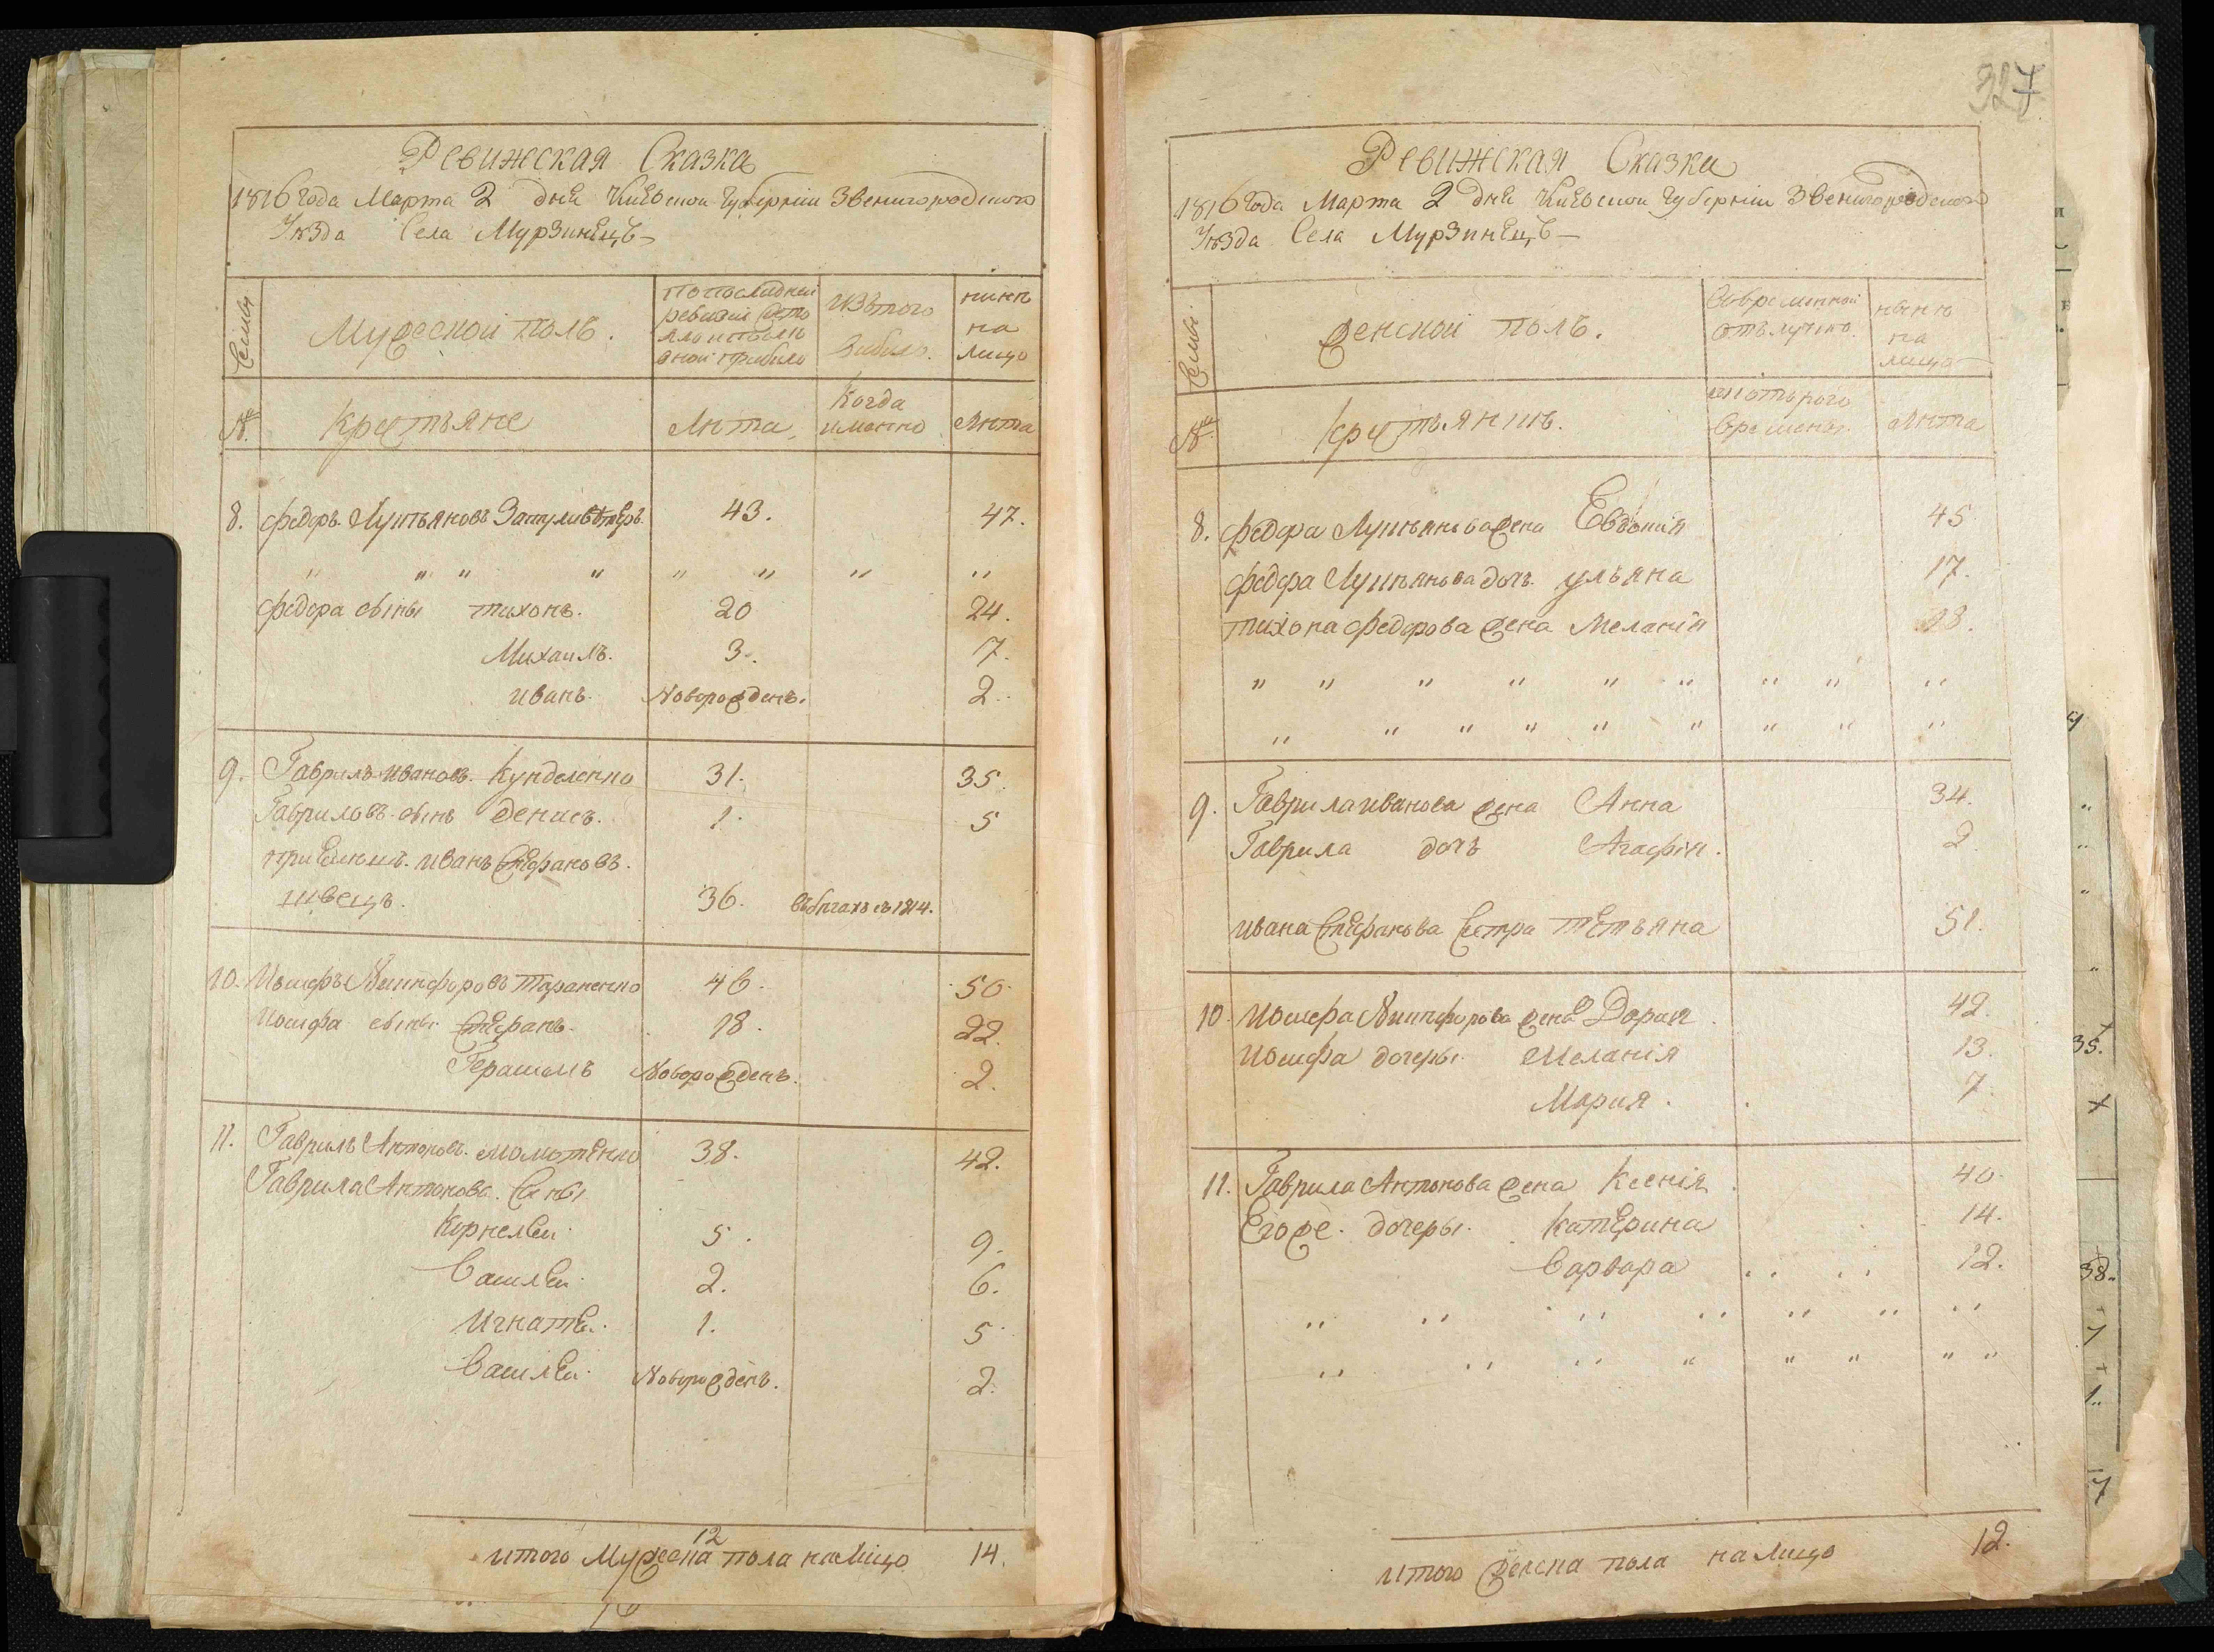 Ревижская Сказка
1816 года Марта 2 дня Киевской Губернии Звенигородского
Уезда Села Мурзинецъ
Семьи
Мужеской полъ.
По последней ревизии состояло и после оной прибыло
Изътого выбыло.
ныне на лицо
№
Крестьяне
Лета
Когда именно
Лета
8. Федоръ Лукьяновъ 43. 47.
" " " " " " " "
Федора сыны Тихонъ. 20 24.
Михаилъ. 3. 7.
Иванъ. Новорожденъ. 2.
9. Гаврилъ Ивановъ. Кунделенко 31. 35.
Гавриловъ сынъ Денисъ. 1. 5
Приемышъ. Иванъ Стефановъ.
Швецъ. 36. въбегахъ съ 1814.
10. Иосифъ Никифоровъ Тараненко 46. 50.
Иосифа сыны Стефанъ. 18. 22.
Герасимъ Новорожденъ. 2.
11. Гаврилъ Антоновъ. Молотенко 38. 42.
Гаврила Антонова. Сыны
Корнелей 5. 9.
Василей 2. 6.
Игнатей. 1. 5
Василей. Новорожденъ. 2.
12
итого Мужеска пола налицо 14.
327
Ревижская Сказка
1816 года Марта 2 дня Киевской Губернии Звенигородского
Уезда Села Мурзинецъ
Семьи
Женской полъ.
Вовременной отълучке.
ныне на лицо
№
Крестьянинъ.
скоторого времены.
Лета
8. Федора Лукьянова жена Евдокия 45
Федора Лукьянова дочь Ульяна 17.
Тихона Федорова жена Мелания 23.
" " " " " " " " "
" " " " " " " " "
9. Гаврила Иванова жена Анна 34.
Гаврила дочь Агафия. 2
Ивана Стефанова Сестра Тетьяна 51.
10. Иосифа Никифорова жена Дария 42.
Иосифа дочеры. Мелания 13.
Мария. 7
11. Гаврила Антонова жена Ксения 40.
Егоже. дочеры. Катерина 14.
Варвара 12.
" " " " " " "
" " " " " " " "
итого Женска пола налицо 12.